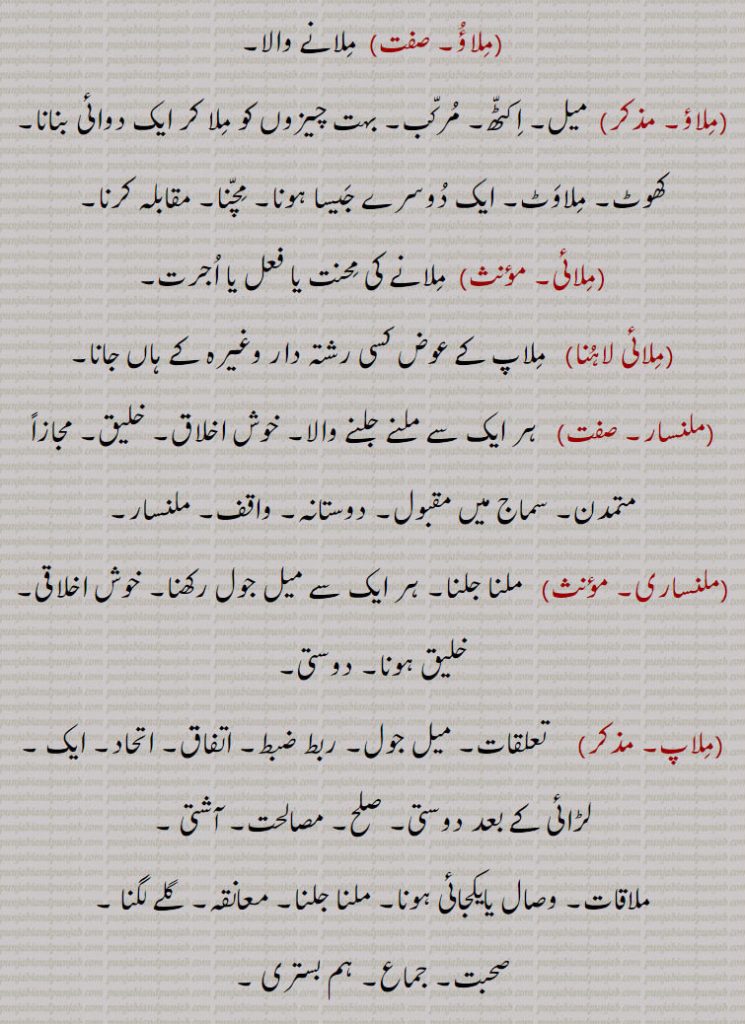 (مِلاؤُ۔ صفت) مِلانے والا۔
(مِلاؤ۔ مذکر) میل۔ اِکٹھّ۔ مُرکّب۔ بہت چیزوں کو مِلا کر ایک دوائی بنانا۔
کھوٹ۔ مِلاوَٹ۔ ایک دُوسرے جَیسا ہونا۔ مِچّنا۔ مقابلہ کرنا۔
(مِلائی۔ مؤنث) مِلانے کی مِحنت یا فعل یا اُجرت۔
(مِلائی لاہُنا) مِلاپ کے عوض کسی رشتہ دار وغیرہ کے ہاں جانا۔
(ملنسار۔ صفت) ہر ایک سے ملنے جلنے والا۔ خوش اخلاق۔ خلیق۔ مجازاً
متمدن۔ سماج میں مقبول۔ دوستانہ۔ واقف۔ ملنسار۔
(ملنساری۔ مؤنث) ملنا جلنا۔ ہر ایک سے میل جول رکھنا۔ خوش اخلاقی۔
خلیق ہونا۔ دوستی۔
(مِلاپ۔ مذکر) تعلقات۔ میل جول۔ ربط ضبط۔ اتفاق۔ اتحاد۔ ایک ۔
لڑائی کے بعد دوستی۔ صلح۔ مصالحت۔ آشتی ۔
ملاقات۔ وصال یایکجائی ہونا۔ ملنا جلنا۔ معانقہ۔ گلے لگنا ۔
صحبت۔ جماع۔ ہم بستری ۔